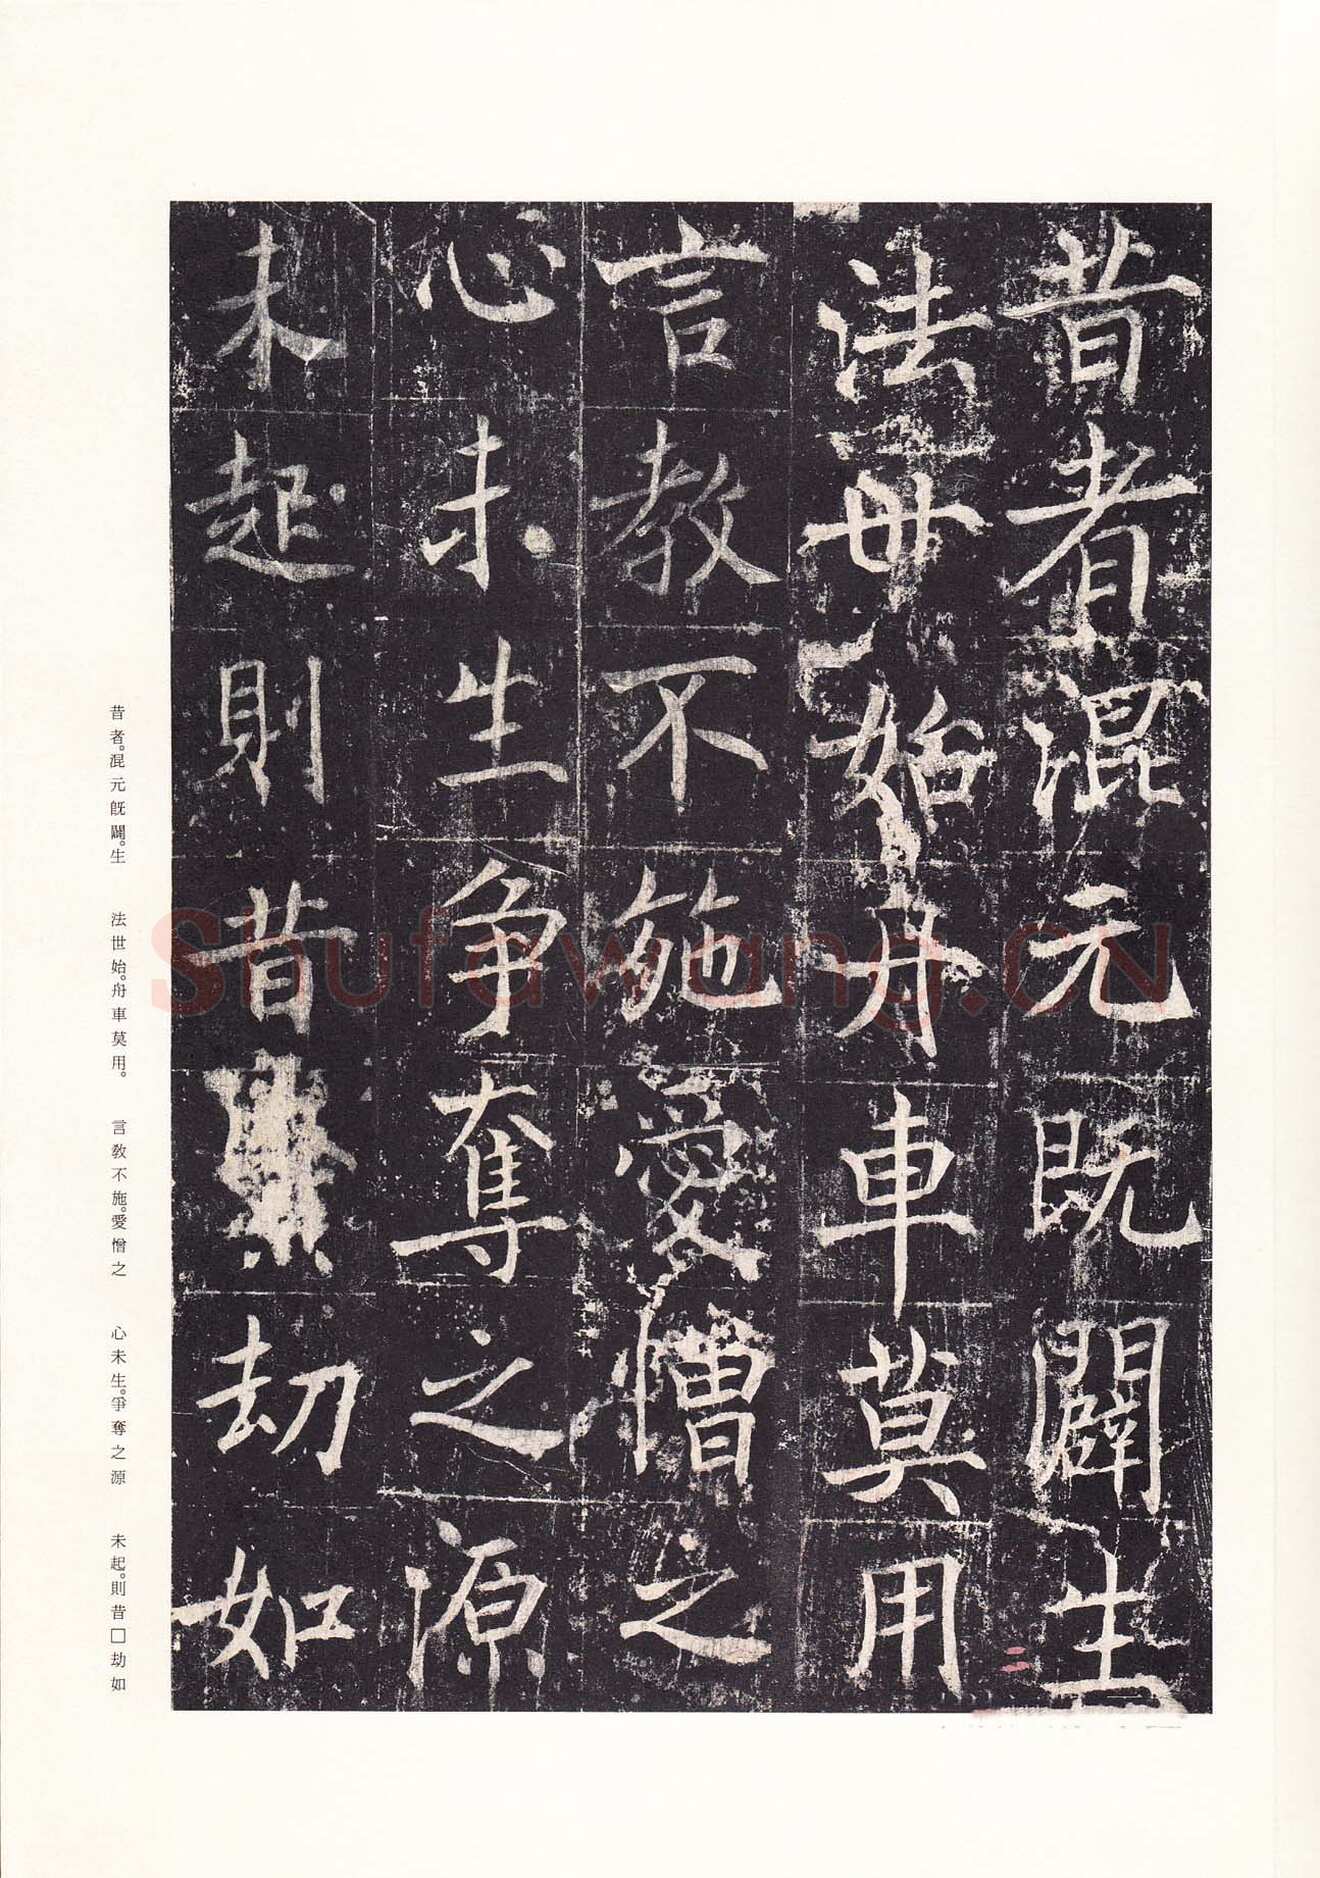 昔者混元既闢生
法世始舟車莫用
言教不施愛憎之
心未生爭奪之源
未起則昔劫如
昔者。混元既闢。生　法世始。舟車莫用。　言教不施。愛憎之　心未生。爭奪之源　未起。則昔□劫如
Shufawang.CN
二